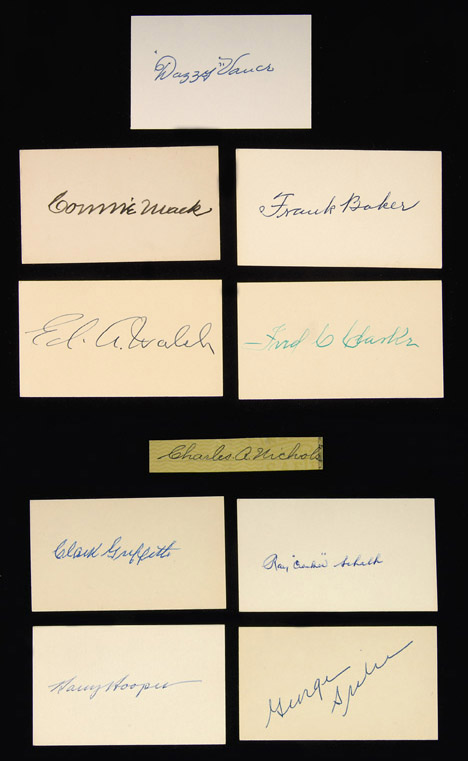 "Dazzy" Vance
Connie Mack
Frank Baker
Ed. A. Walsh
Fred C Clarke
Charles A Nichols
Clark Griffith
Ray "Cracker" Schalk
Harry Hooper
George Sisler